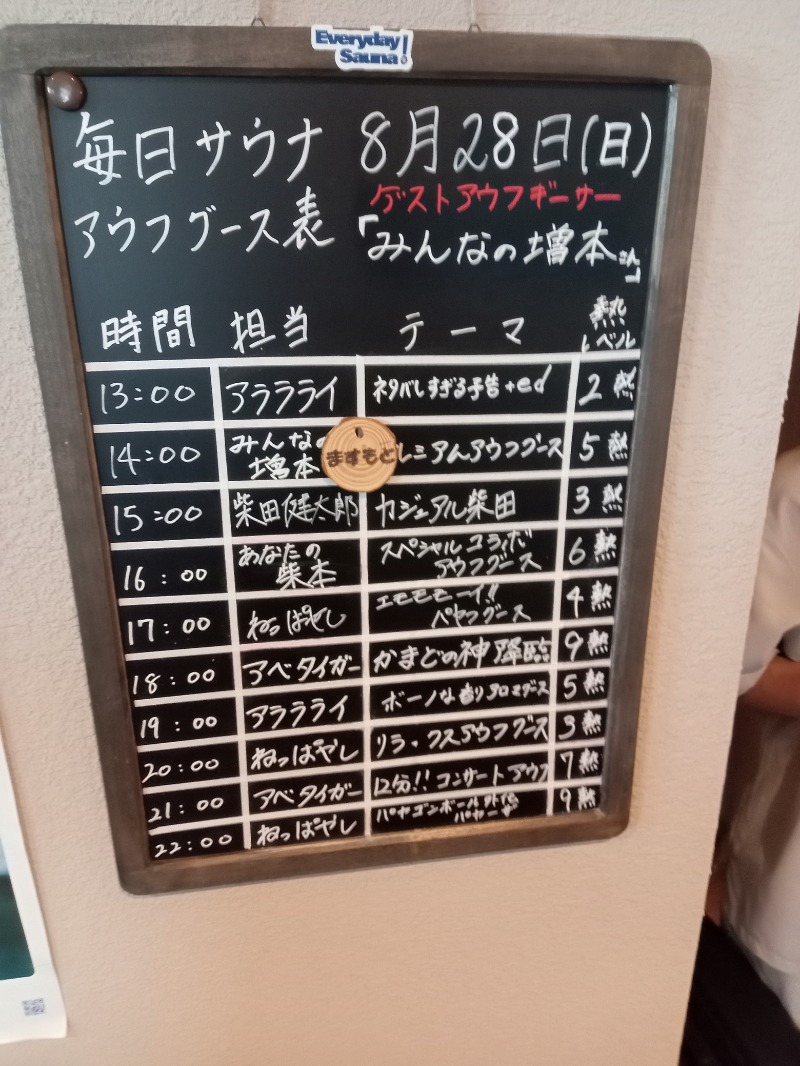 Everyday
Sauna!
毎日サウナ 8月28日(日)
ゲストアウフギーサー
アウフグース表 「みんなの増本さん」
時間 担当 テーマ 熱レベル
13:00 アララライ ネタバレすぎる予告+ed 2熱
14:00 みんなの増本 ますもと レミアムアウフグース 5熱
15:00 柴田健太郎 カジュアル柴田 3熱
16:00 あなたの柴本 スペシャルコラボアウフグース 6熱
17:00 ねっぱやし エモモモーイ!! パヤフグース 4熱
18:00 アベタイガー かまどの神降臨 9熱
19:00 アララライ ボーノな香りアロマグース 5熱
20:00 ねっぱやし リラックスアウフグース 3熱
21:00 アベタイガー 12分!! コンサートアウフ 7熱
22:00 ねっぱやし パヤゴンボール 9熱